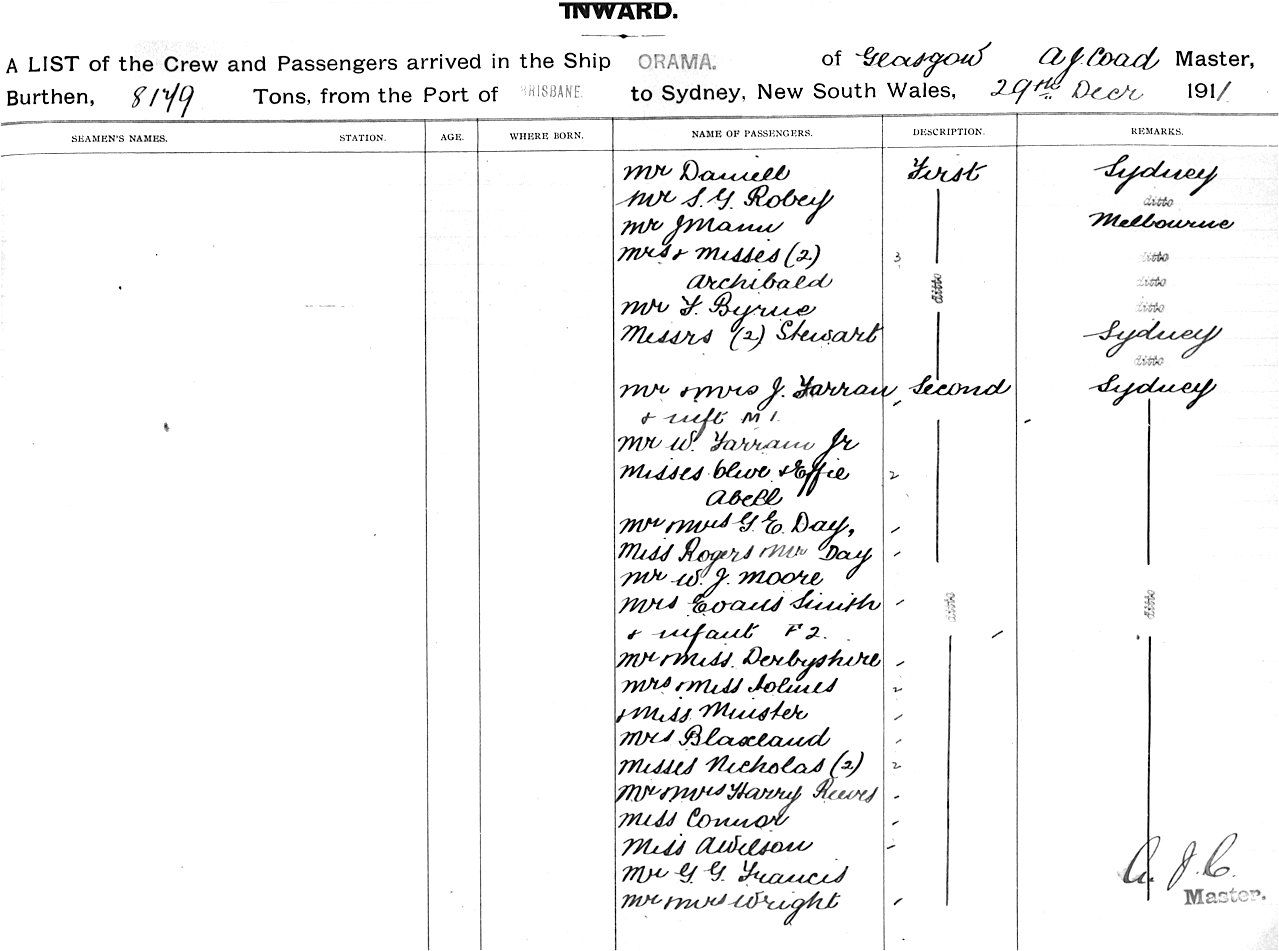 INWARD.
A LIST of the Crew and Passengers arrived in the Ship ORAMA. of Glasgow A J Coad Master,
Burthen, 8179 Tons, from the Port of BRISBANE to Sydney, New South Wales, 29th Decr 1911
SEAMEN'S NAMES. STATION. AGE. WHERE BORN. NAME OF PASSENGERS. DESCRIPTION. REMARKS.
Mr Daniell First Sydney
Mr S. G. Robey ditto
Mr J Mann Melbourne
Mrs & Misses (2) 3 ditto
Archibald ditto ditto
Mr F. Byrne ditto
Messrs (2) Stewart Sydney
ditto
Mr & Mrs J. Farran Second Sydney
& inft M 1.
Mr W. Farram Jr
Misses Olive & Effie 2
Abell
Mr & Mrs G. E. Day,
Miss Rogers Mr Day
Mr W. J. Moore
Mrs Evans Smith ditto ditto
& infant F 2.
Mr & Miss Derbyshire
Mrs & Miss Holmes 2
& Miss Minister
Mrs Blaxland
Misses Nicholas (2) 2
Mr & Mrs Harry Reeves
Miss Connor
Miss A Wilson
Mr G. G. Francis A. J. C.
Mr & Mrs Wright Master.